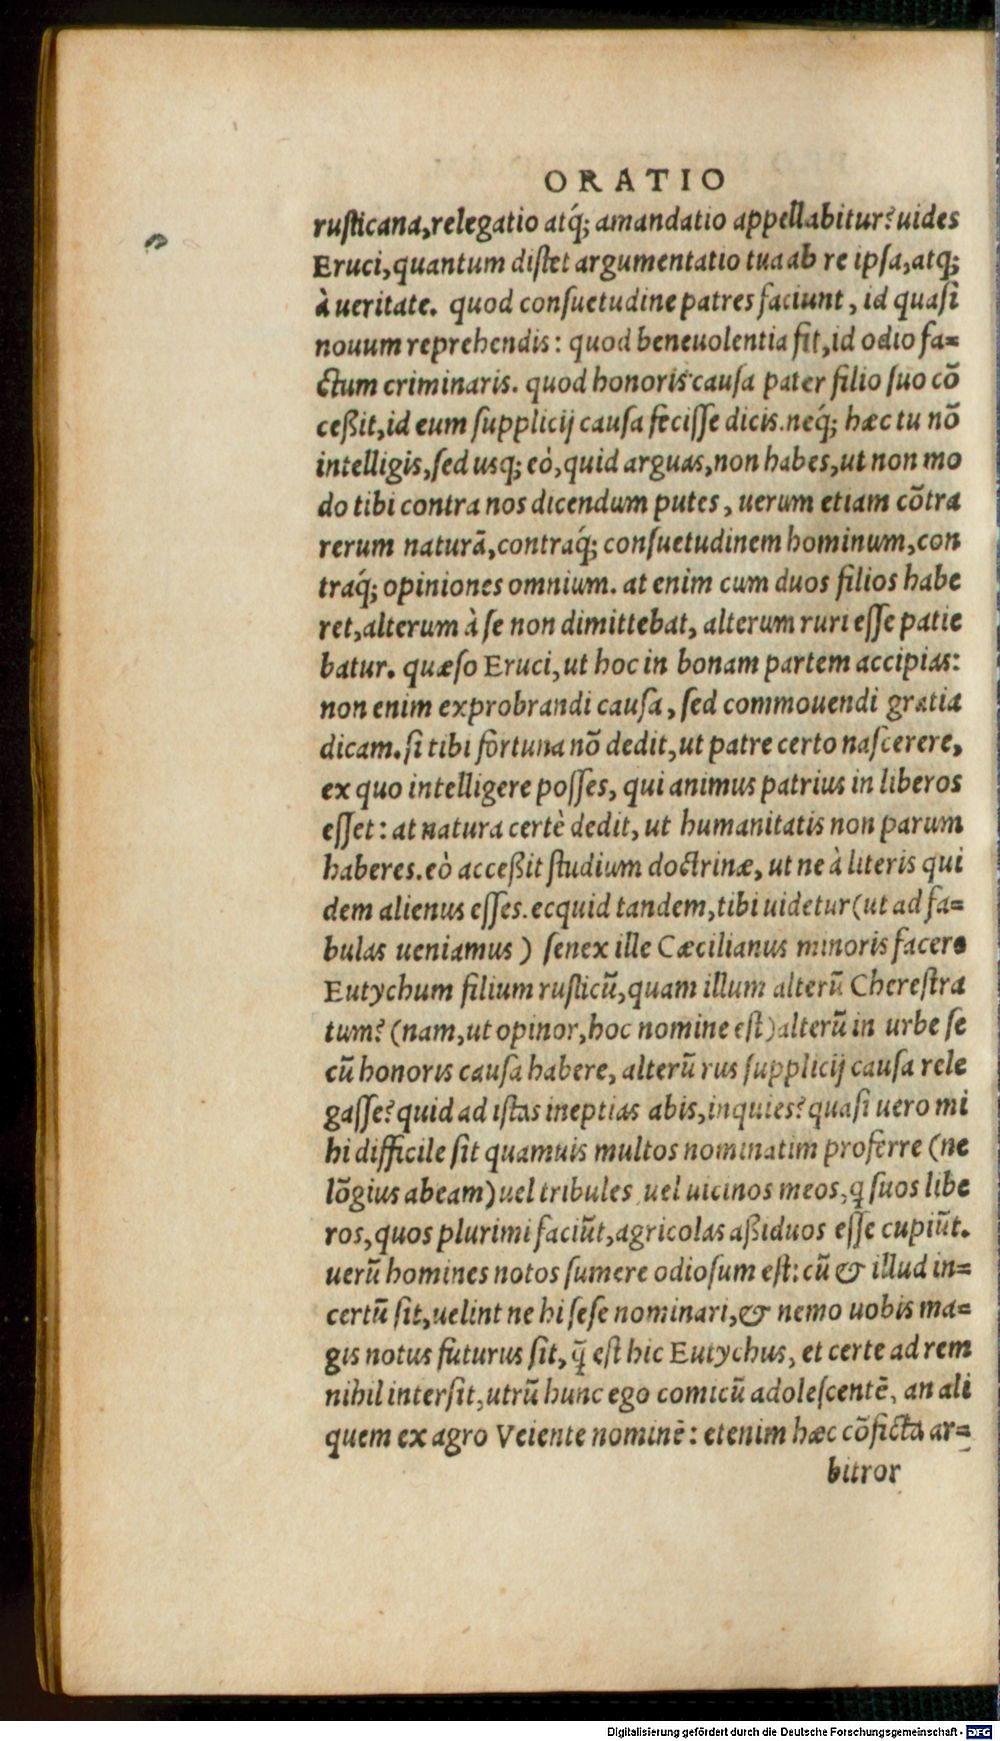 ORATIO
ruſticana,relegatio atq́; amandatio appellabitur? uides
Eruci,quantum diſtet argumentatio tua ab re ipſa,atq;
à ueritate. quod conſuetudine patres faciunt, id quaſi
nouum reprehendis: quod beneuolentia fit,id odio fa=
ctum criminaris. quod honoris cauſa pater filio ſuo cō
ceßit,id eum ſupplicij cauſa feciſſe dicis.neq́; hæc tu nō
intelligis,ſed uſq; eò,quid arguas,non habes,ut non mo
do tibi contra nos dicendum putes, uerum etiam cōtra
rerum naturā,contraq́; conſuetudinem hominum,con
traq́; opiniones omnium. at enim cum duos filios habe
ret,alterum à ſe non dimittebat, alterum ruri eſſe patie
batur. quæſo Eruci,ut hoc in bonam partem accipias:
non enim exprobrandi cauſa, ſed commouendi gratia
dicam.ſi tibi fortuna nō dedit,ut patre certo naſcerere,
ex quo intelligere poſſes, qui animus patrius in liberos
eſſet: at natura certè dedit, ut humanitatis non parum
haberes.eò acceßit ſtudium doctrinæ, ut ne à literis qui
dem alienus eſſes.ecquid tandem,tibi uidetur(ut ad fa=
bulas ueniamus) ſenex ille Cæcilianus minoris facere
Eutychum filium ruſticū,quam illum alterū Chereſtra
tum? (nam,ut opinor,hoc nomine eſt)alterū in urbe ſe
cū honoris cauſa habere, alterū rus ſupplicij cauſa rele
gaſſe? quid ad iſtas ineptias abis,inquies? quaſi uero mi
hi difficile ſit quamuis multos nominatim proferre (ne
lōgius abeam)uel tribules uel uicinos meos,q ſuos libe
ros,quos plurimi faciūt,agricolas aßiduos eſſe cupiūt.
uerū homines notos ſumere odioſum eſt:cū & illud in=
certū ſit,uelint ne hi ſeſe nominari,& nemo uobis ma=
gis notus futurus ſit, q̄ eſt hic Eutychus, et certe ad rem
nihil interſit,utrū hunc ego comicū adoleſcentē, an ali
quem ex agro Veiente nominē: etenim hæc cōficta ar=
bitror
Digitalisierung gefördert durch die Deutsche Forschungsgemeinschaft - DFG